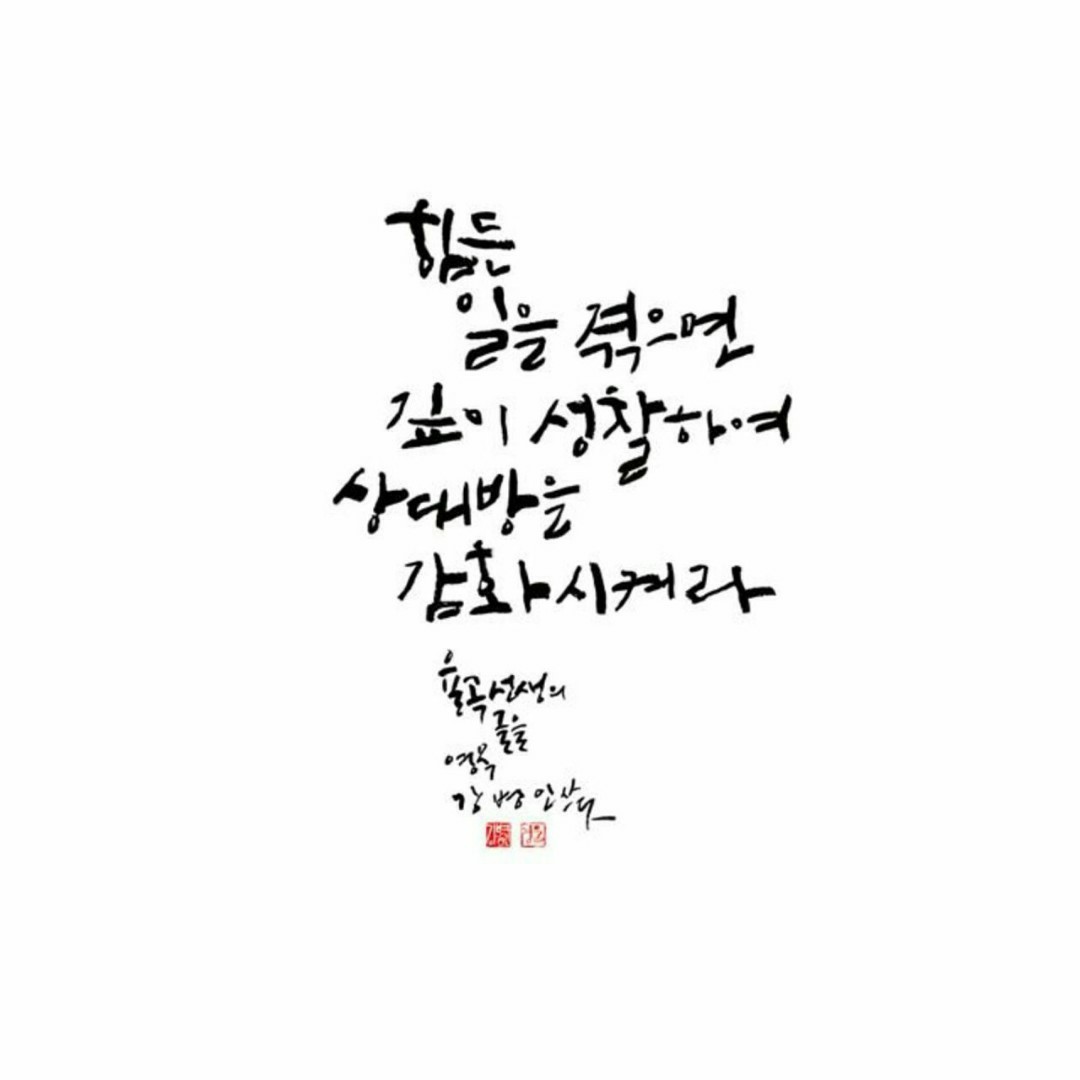 힘든
일을 겪으면
깊이 성찰하여
상대방을
감화시켜라
율곡선생의
글을
영묵
강병인 쓰다